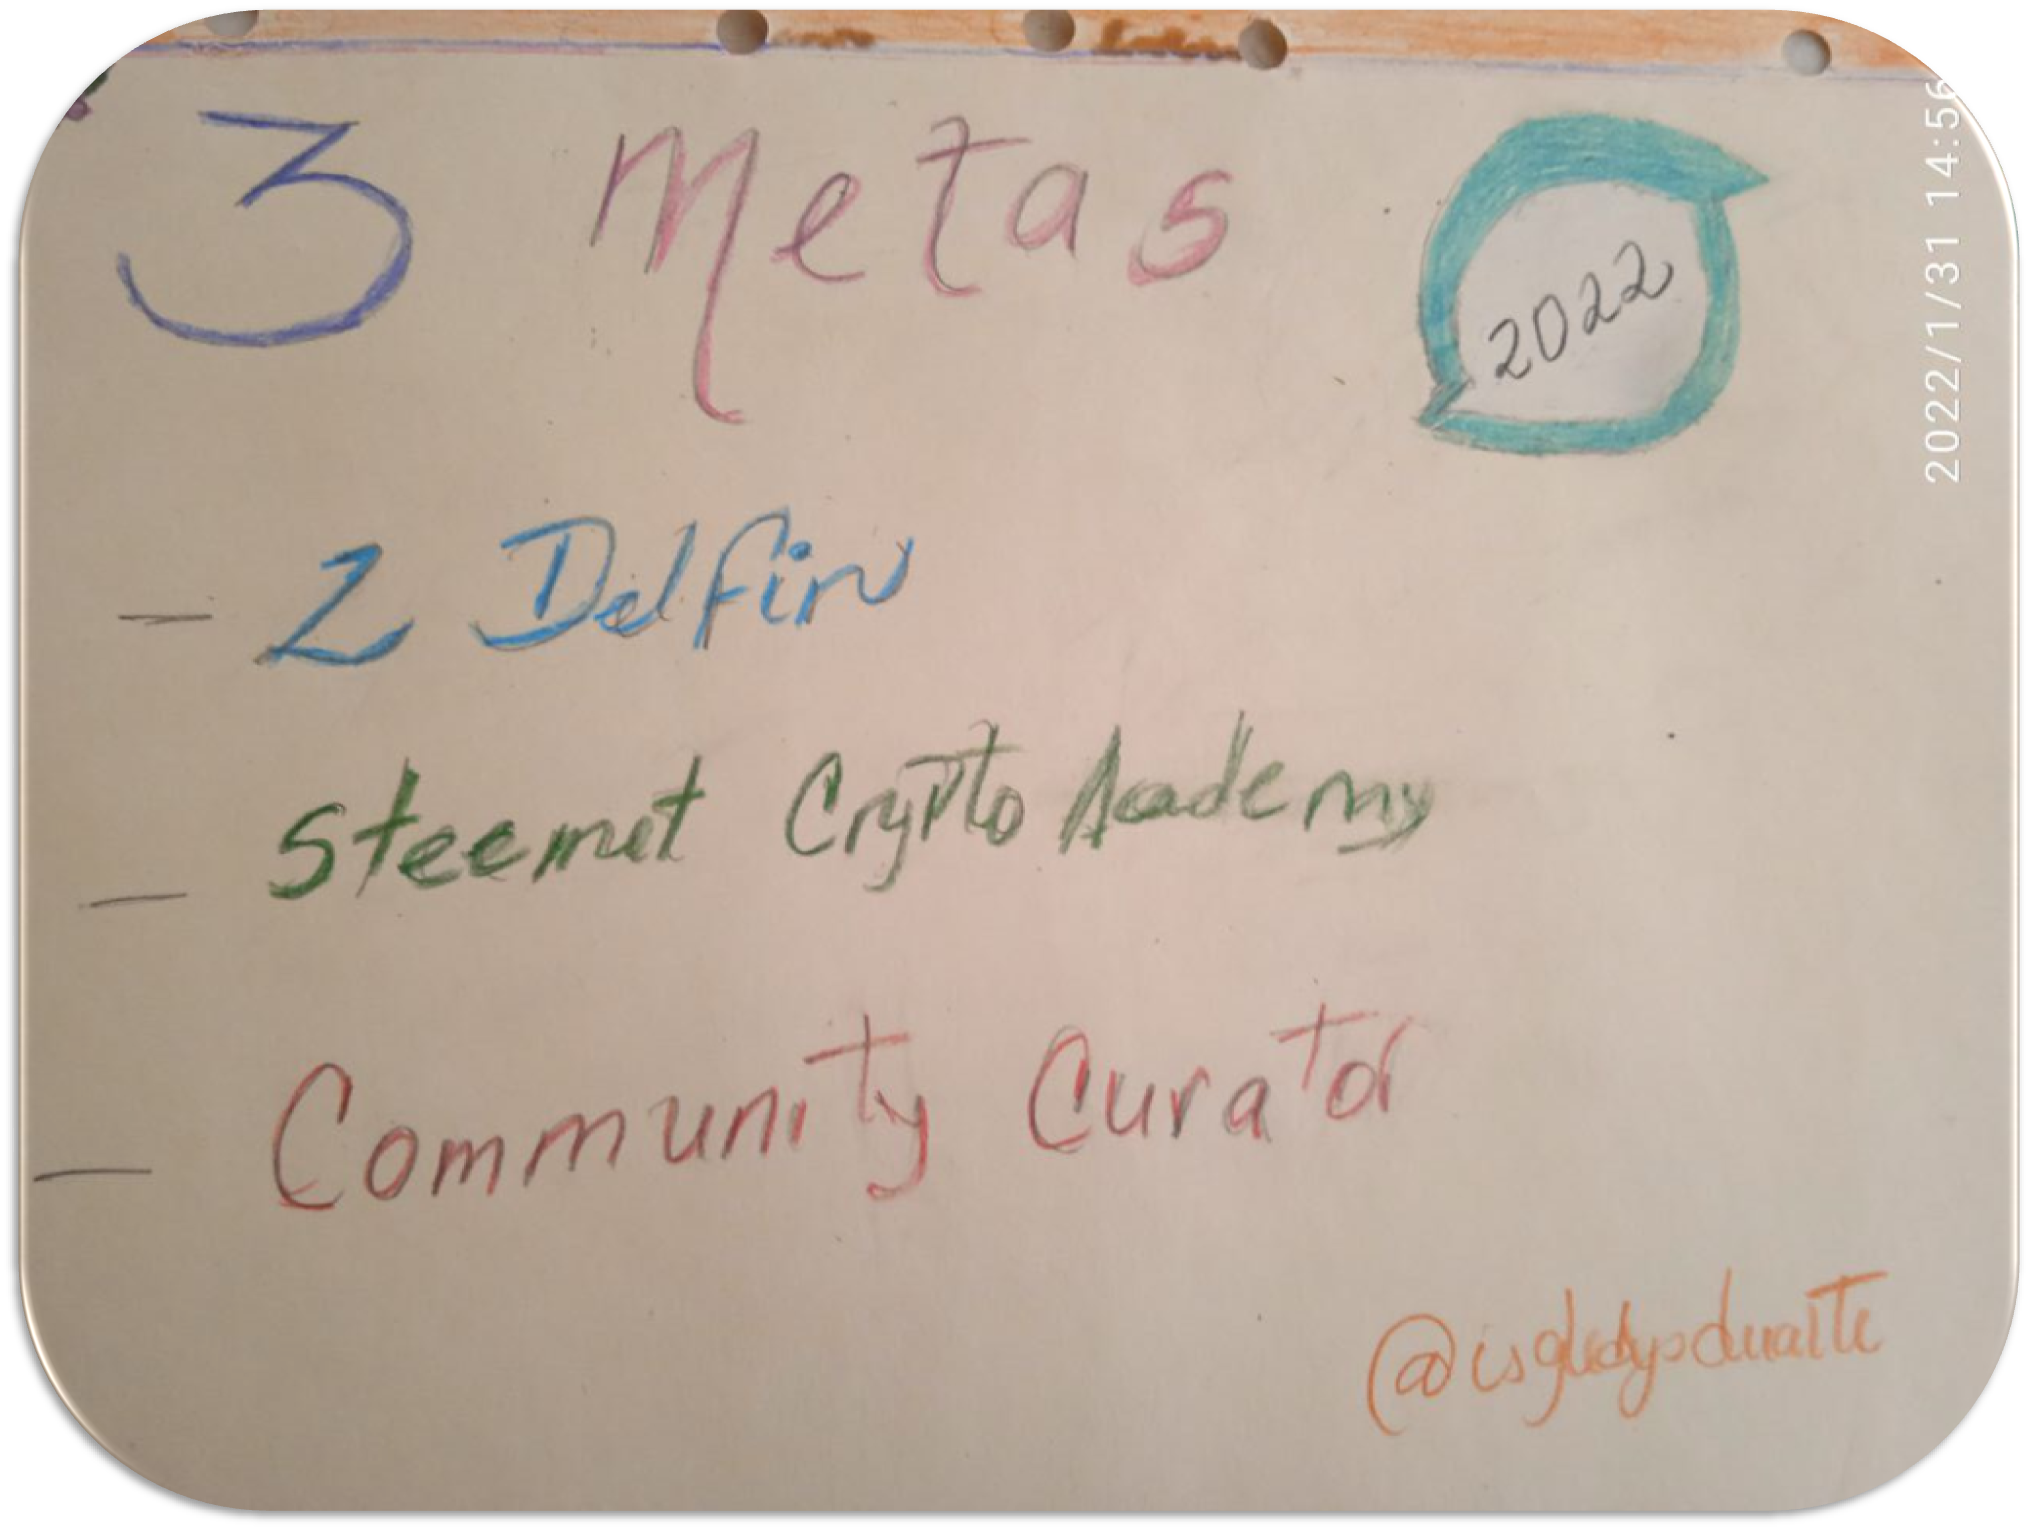 3 Metas
2022
2022/1/31 14:56
- 2 Delfin
- Steemet Crypto Academy
- Community Curator
@isgledysduarte